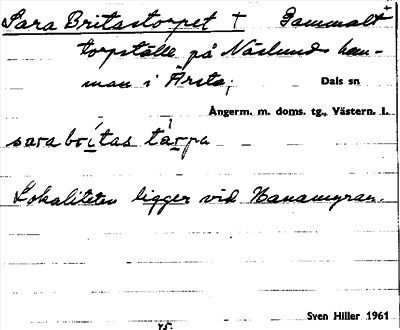 Sara Britastorpet † Gammalt
torpställe på Näslunds hem-
man i Årsta;
Dals sn
Ångerm. m. doms. tg., Västern. l.
sara britas tärpa
Lokaliteten ligger vid Hanamyran.
Sven Hiller 1961